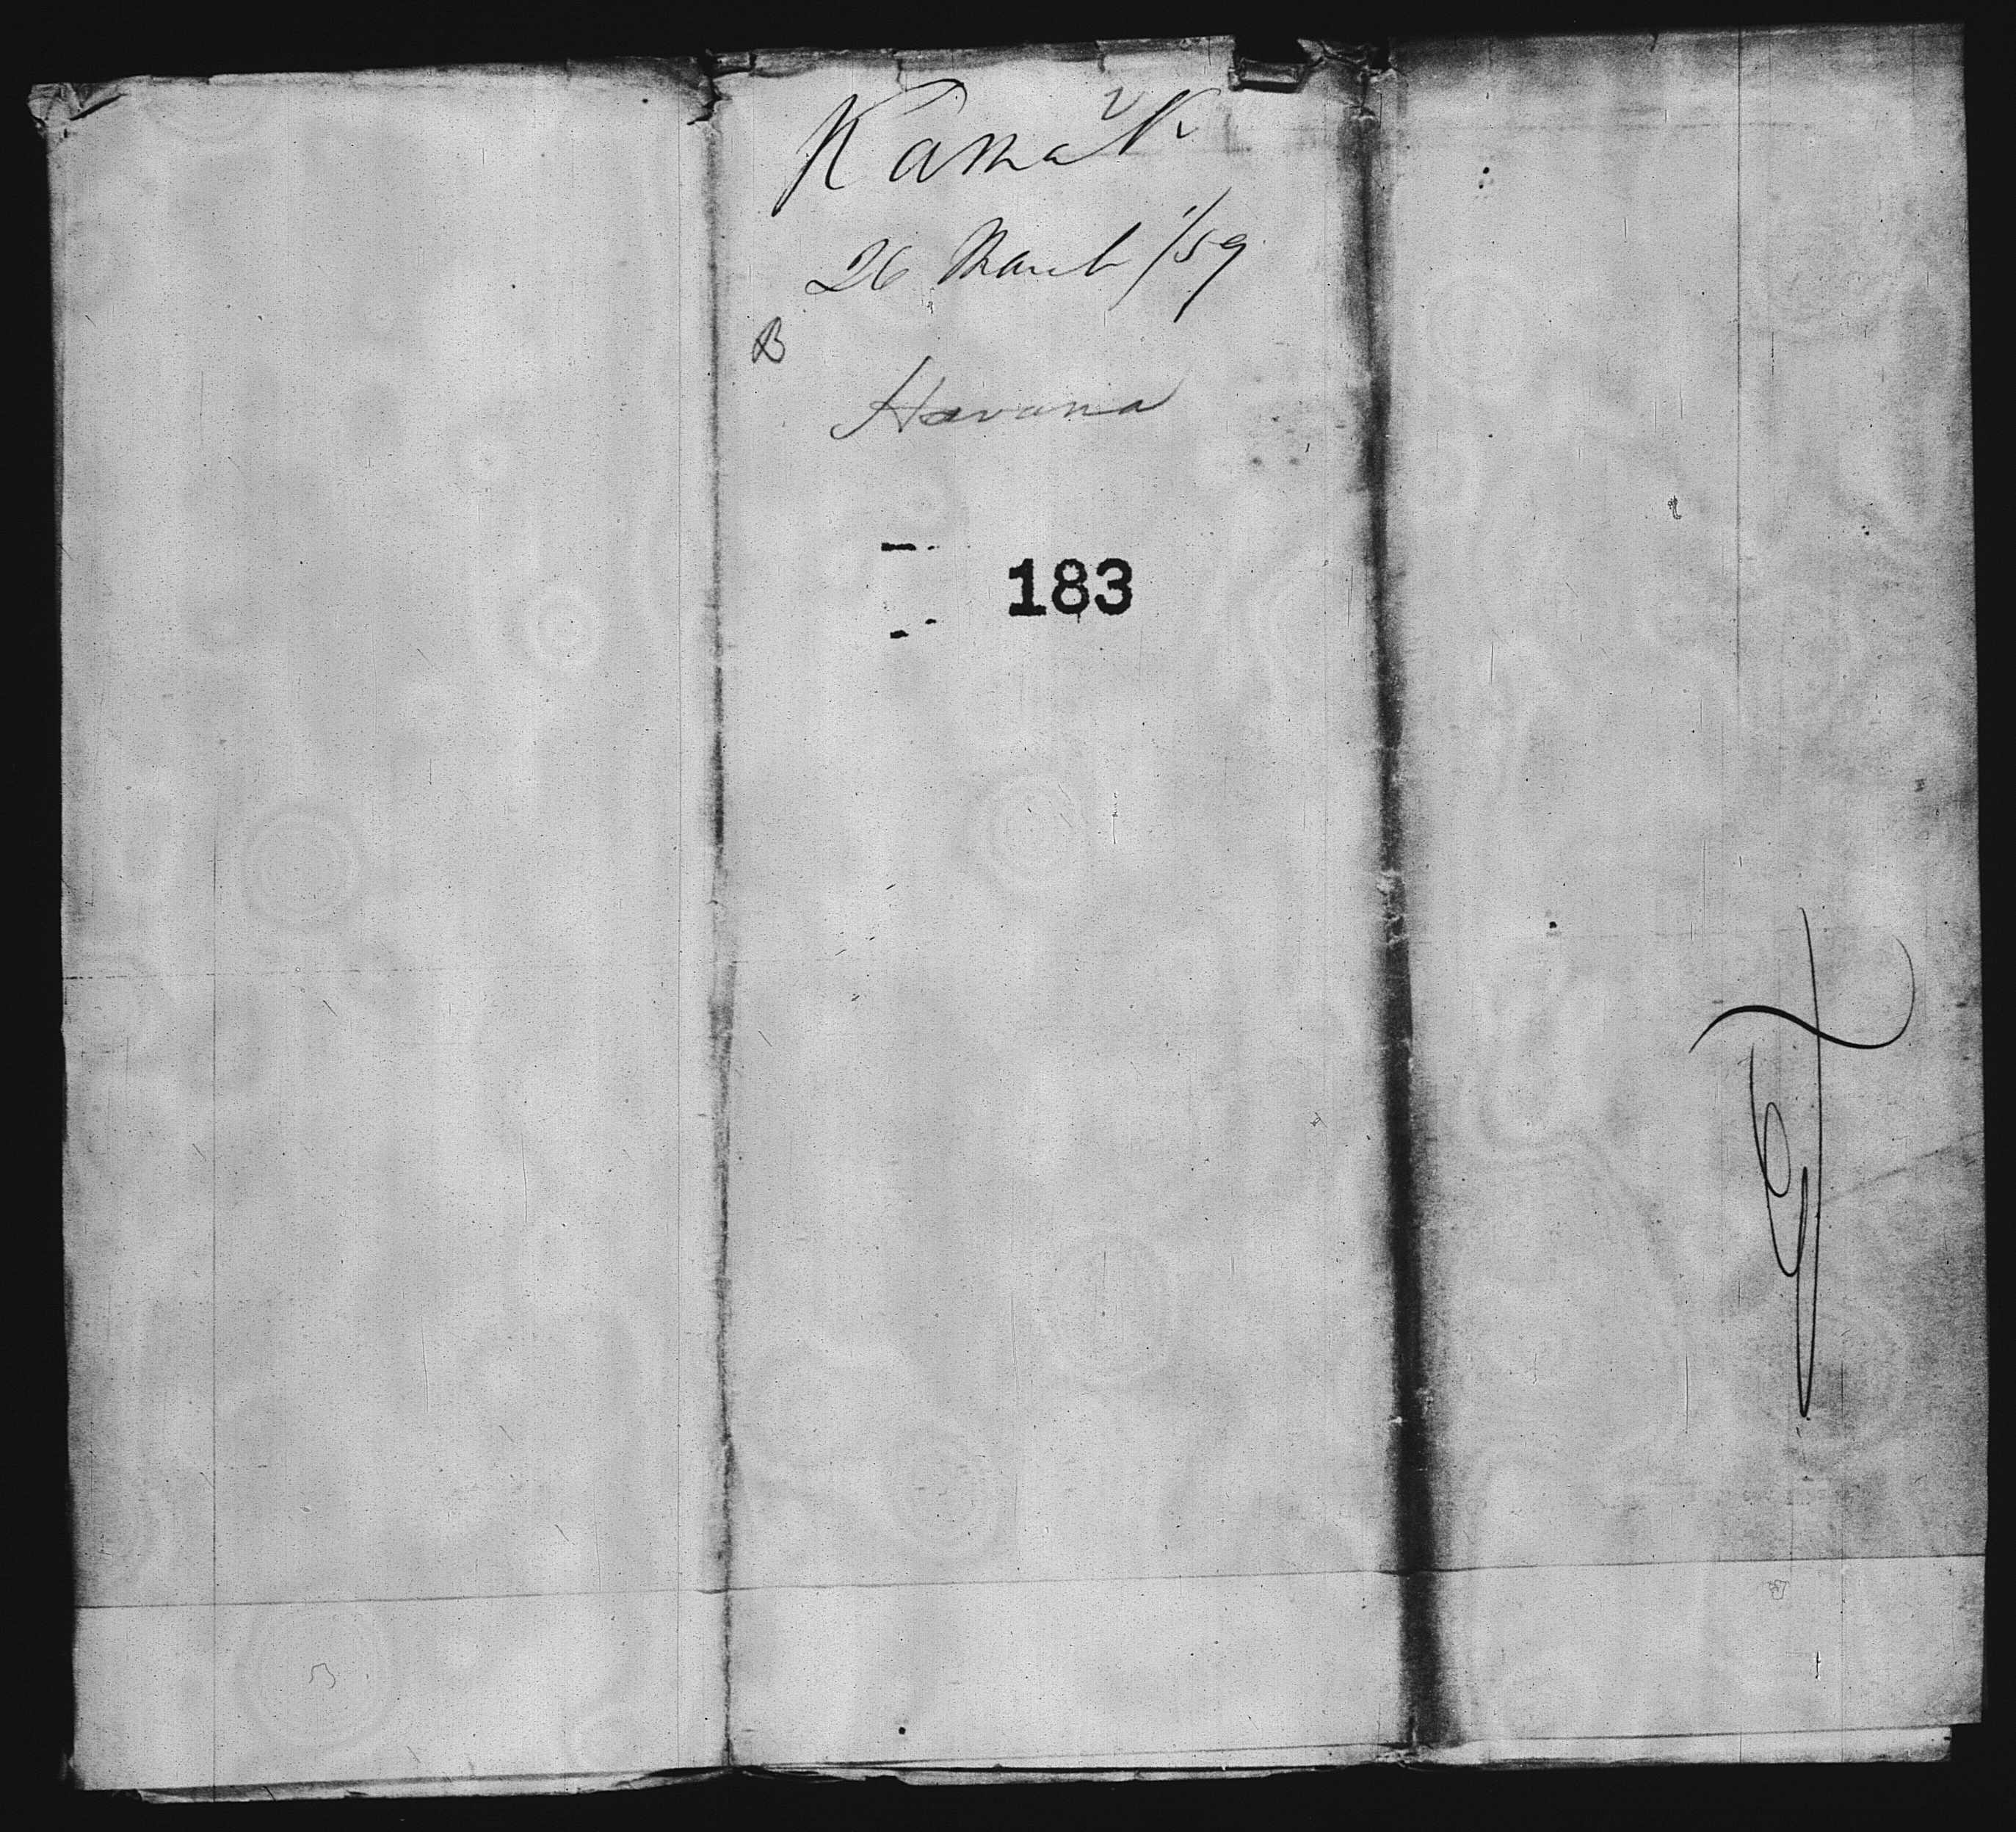 Karnak
26 March /59
B
Havana
183